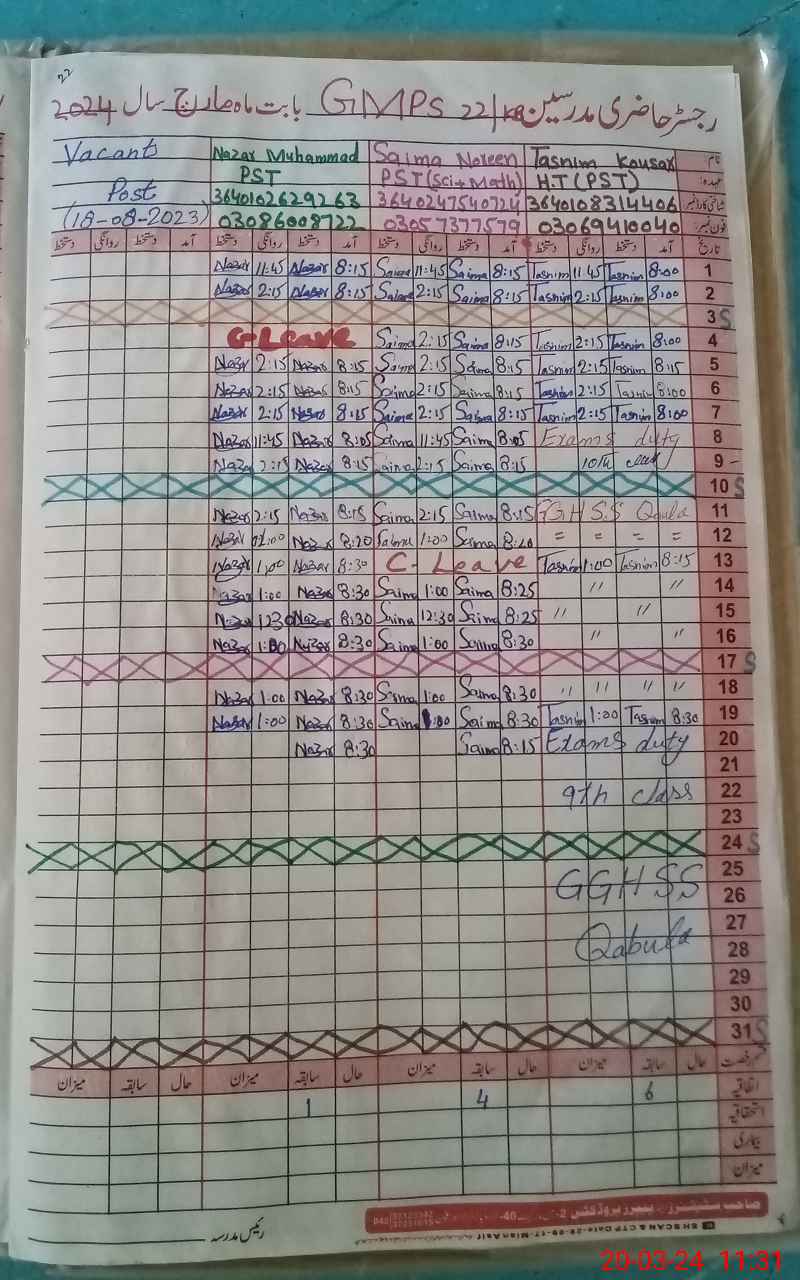 22
رجسٹر حاضری مدرسین GMPS 22/KB بابت ماہ مارچ سال 2024
نام: Tasnim Kousar Saima Noreen Nazar Muhammad Vacant
عہدہ: H.T (PST) PST (Sci+Math) PST Post
شناختی کارڈ نمبر 3640108314406 3640247540724 3640102629263
فون نمبر: 03069410040 03057377579 03086008722 (18-08-2023)
تاریخ آمد دستخط روانگی دستخط آمد دستخط روانگی دستخط آمد دستخط روانگی دستخط آمد دستخط روانگی دستخط
1 8:00 Tasnim 11:45 Tasnim 8:15 Saima 11:45 Saima 8:15 Nazar 11:45 Nazar
2 8:00 Tasnim 2:15 Tasnim 8:15 Saima 2:15 Saima 8:15 Nazar 2:15 Nazar
3 S
4 8:00 Tasnim 2:15 Tasnim 8:15 Saima 2:15 Saima C-Leave
5 8:15 Tasnim 2:15 Tasnim 8:15 Saima 2:15 Saima 8:15 Nazar 2:15 Nazar
6 8:00 Tasnim 2:15 Tasnim 8:15 Saima 2:15 Saima 8:15 Nazar 2:15 Nazar
7 8:00 Tasnim 2:15 Tasnim 8:15 Saima 2:15 Saima 8:15 Nazar 2:15 Nazar
8 Exams duty 8:05 Saima 11:45 Saima 8:05 Nazar 11:45 Nazar
9 10th class 8:15 Saima 2:15 Saima 8:15 Nazar 2:15 Nazar
10 S
11 GGHSS Qabula 8:15 Saima 2:15 Saima 8:15 Nazar 2:15 Nazar
12 = = = = 8:20 Saima 1:00 Saima 8:20 Nazar 1:00 Nazar
13 8:15 Tasnim 1:00 Tasnim C-Leave 8:30 Nazar 1:00 Nazar
14 " " 8:25 Saima 1:00 Saima 8:30 Nazar 1:00 Nazar
15 " " 8:25 Saima 12:30 Saima 8:30 Nazar 12:30 Nazar
16 " " 8:30 Saima 1:00 Saima 8:30 Nazar 1:00 Nazar
17 S
18 " " " " 8:30 Saima 1:00 Saima 8:30 Nazar 1:00 Nazar
19 8:30 Tasnim 1:00 Tasnim 8:30 Saima 1:00 Saima 8:30 Nazar 1:00 Nazar
20 Exams duty 8:15 Saima 8:30 Nazar
21
22 9th class
23
24 S
25
26 GGHSS
27
28 Qabula
29
30
31 S
قسم رخصت حال سابقہ میزان حال سابقہ میزان حال سابقہ میزان حال سابقہ میزان
اتفاقیہ 6 4 1
استحقاقیہ
بیماری
میزان
رئیس مدرسہ
20-03-24 11:31